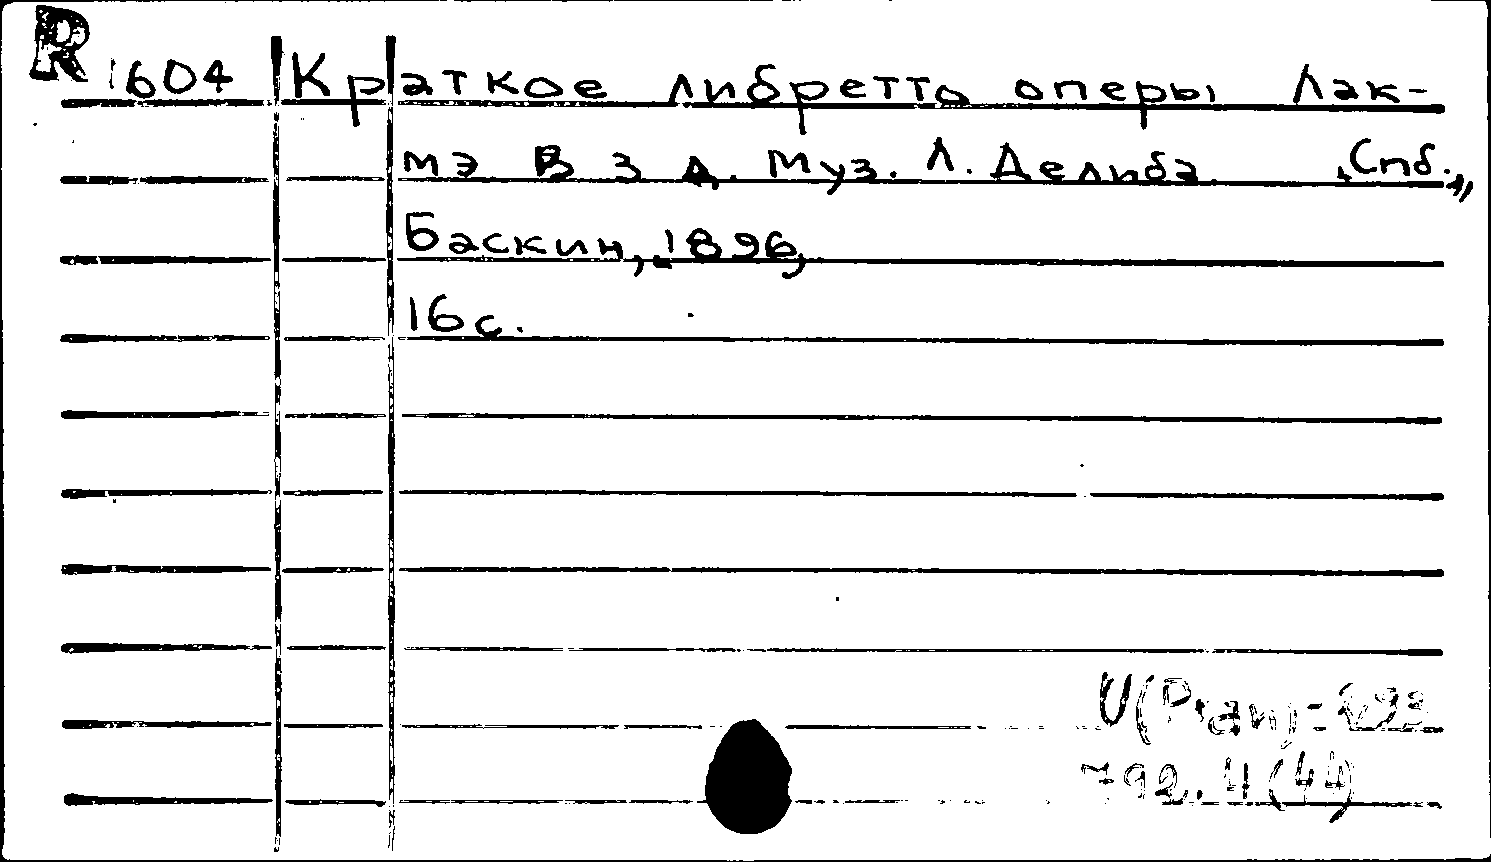 R 1604 Краткое либретто оперы Лак-
мэ В 3 д. Муз. Л. Делиба „Спб.”
Баскин, 1896,
16 с.
792.4(44)